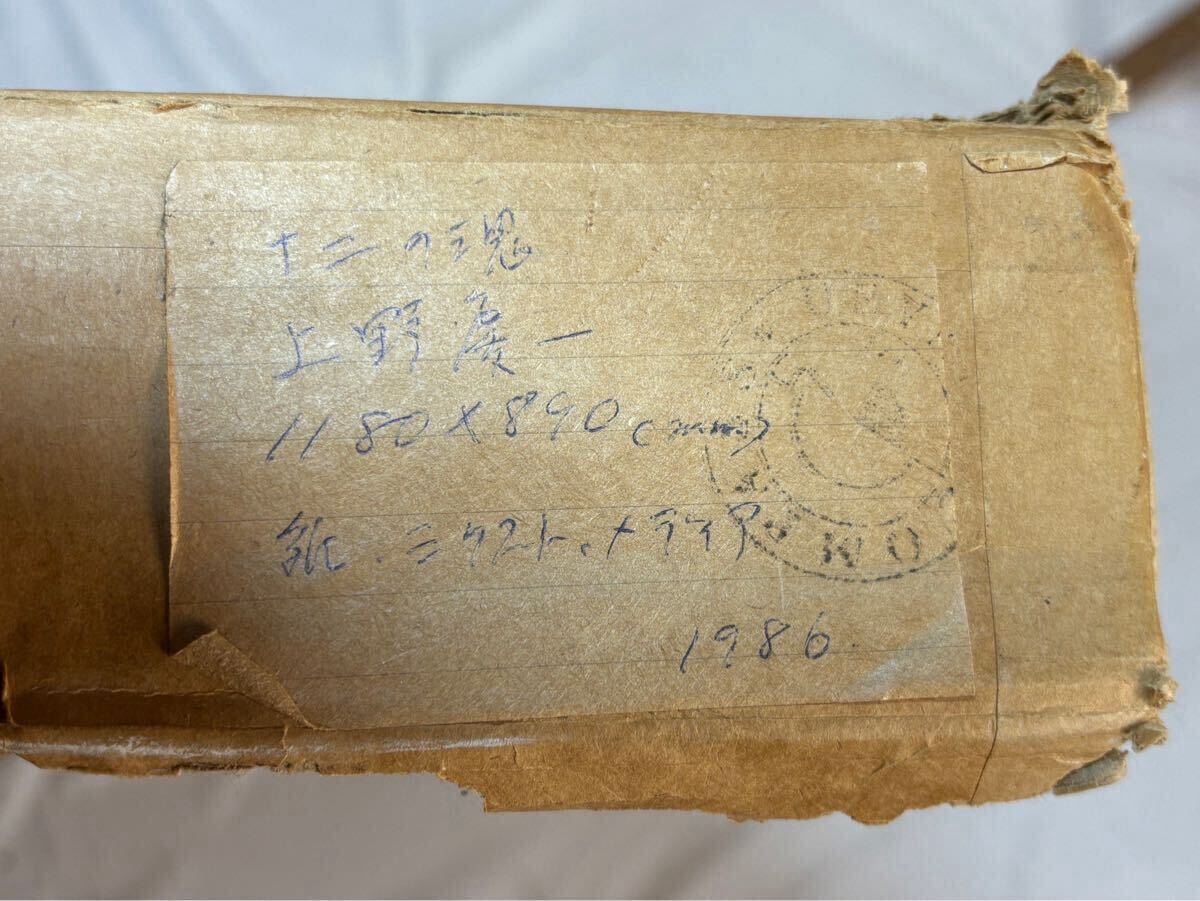 十二の魂
上野慶一
1180×890(mm)
紙.ミクスト.メディア
1986.